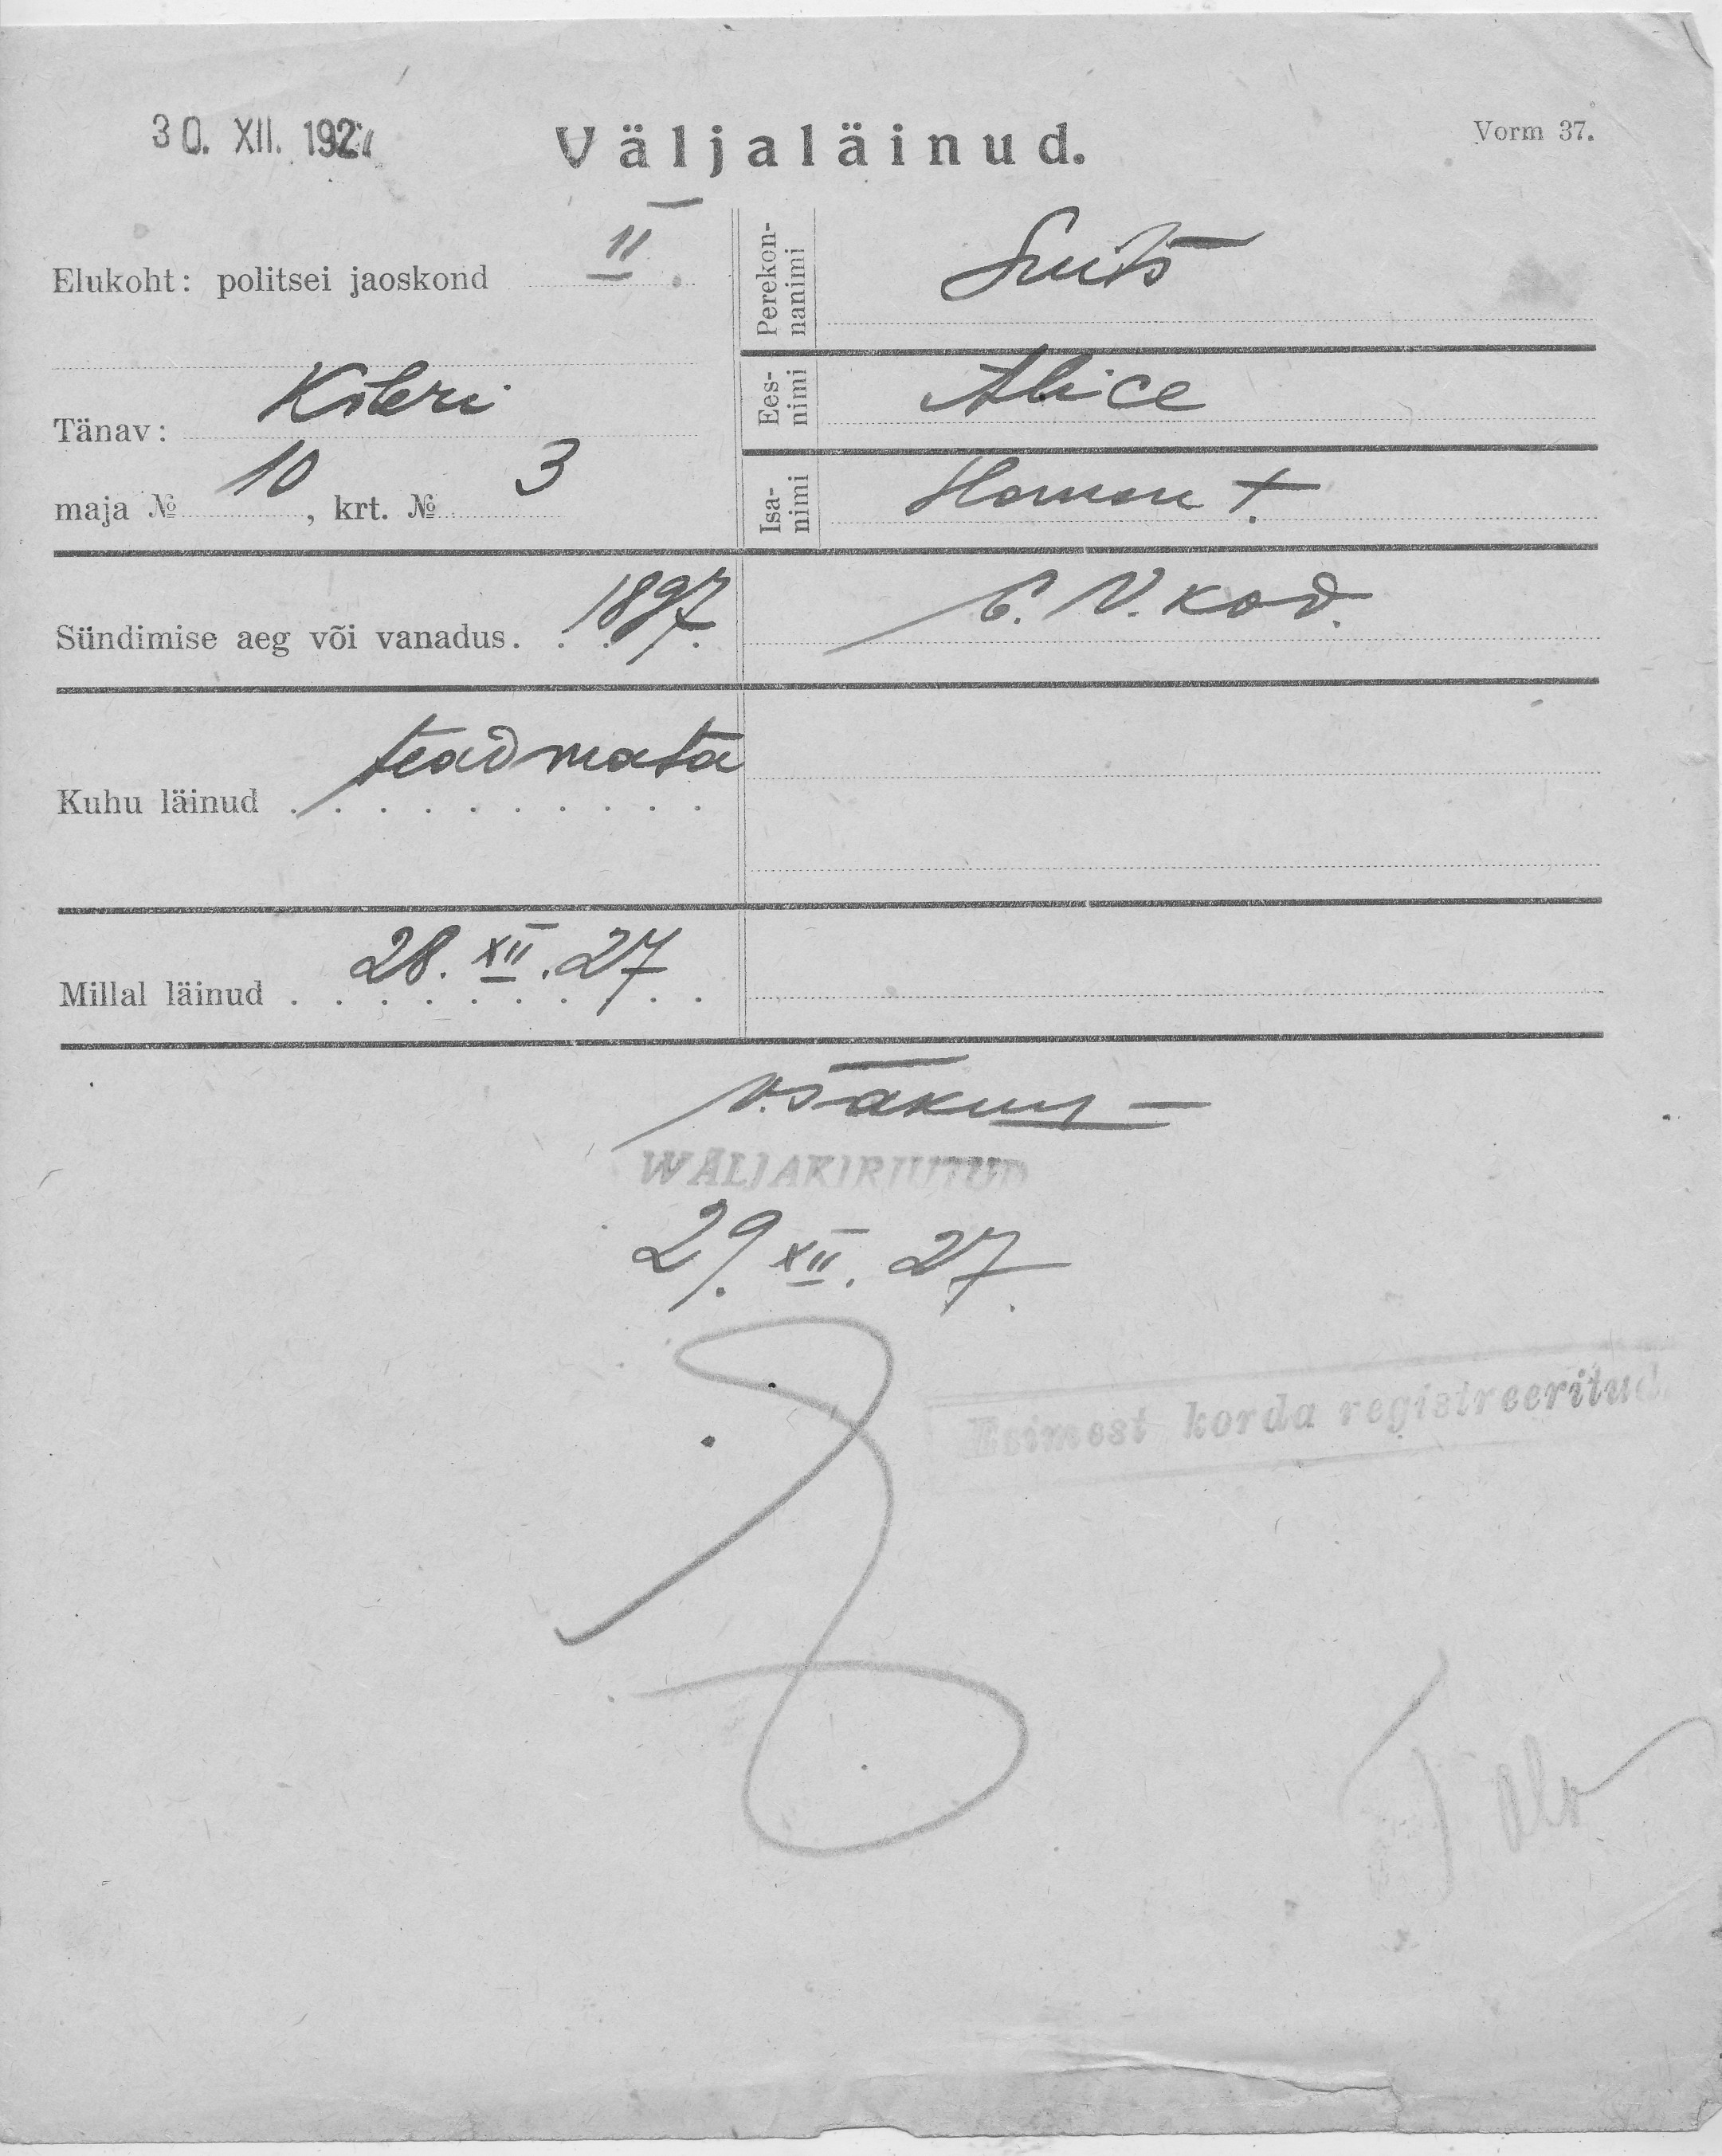 30. XII. 192
Väljaläinud.
Vorm 37.
Elukoht: politsei jaoskond II.
Tänav: Köleri
maja № 10, krt. № 3
Perekon-
nanimi
Suits
Ees-
nimi
Alice
Isa-
nimi
Sündimise aeg või vanadus. 1897.
E. V. kod.
Kuhu läinud teadmata
Millal läinud 28. XII. 27
WÄLJAKIRJUTUD
29. XII. 27.
Esimest korda registreeritud.